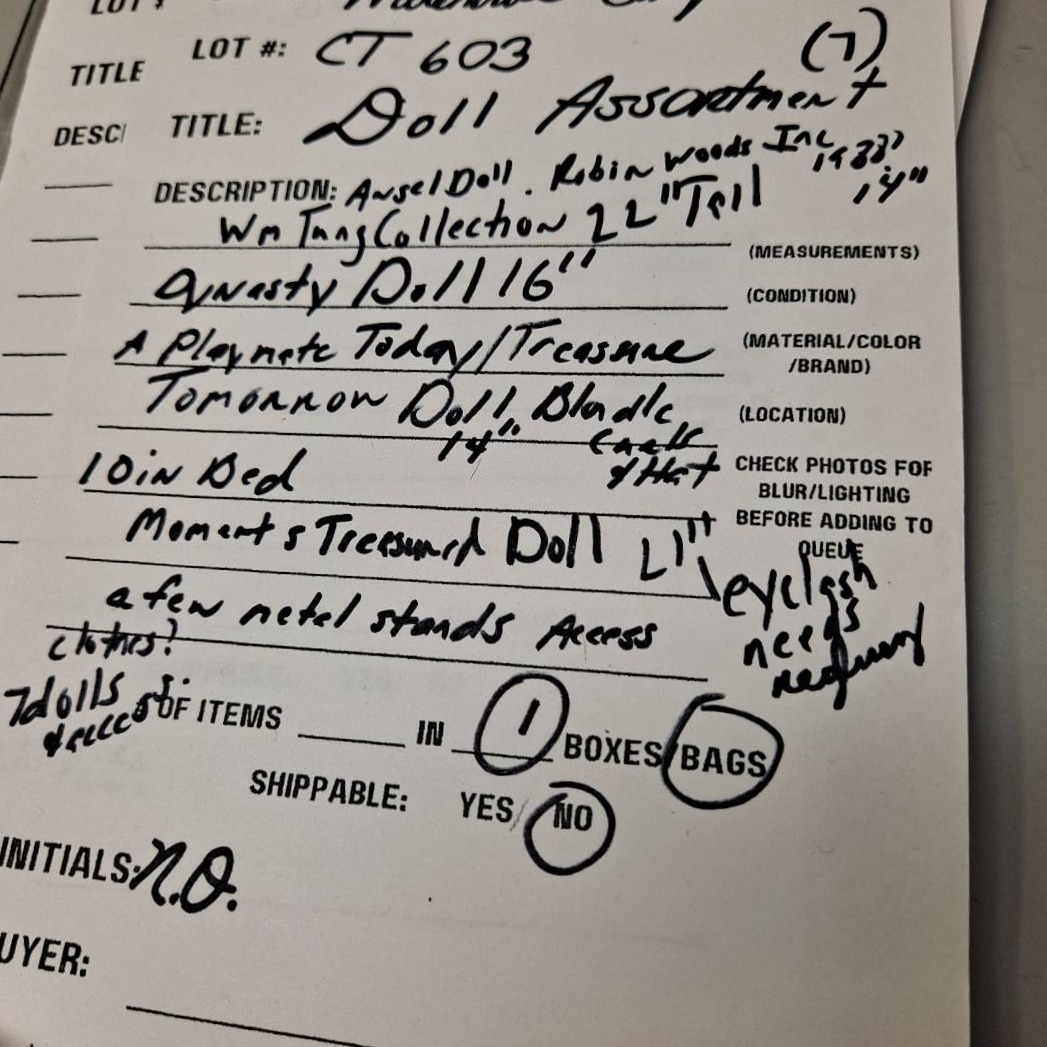 LOT #: CT 603 (7)
TITLE
TITLE: Doll Assortment
DESC
DESCRIPTION: Angel Doll. Robin Woods Inc 1988? 14"
Wm Tung Collection 22" Tall
(MEASUREMENTS)
Dynasty Doll 16"
(CONDITION)
A Playmate Today/Treasure
(MATERIAL/COLOR
/BRAND)
Tomorrow Doll, Blonde
(LOCATION)
14"
& Hat
CHECK PHOTOS FOR
BLUR/LIGHTING
BEFORE ADDING TO
QUEUE
10in Bed
Moments Treasured Doll 21"
eyelash
needs
a few metal stands Access
clothes?
7 dolls
& access
# OF ITEMS IN 1 BOXES/BAGS
SHIPPABLE: YES/NO
INITIALS: N.O.
UYER: